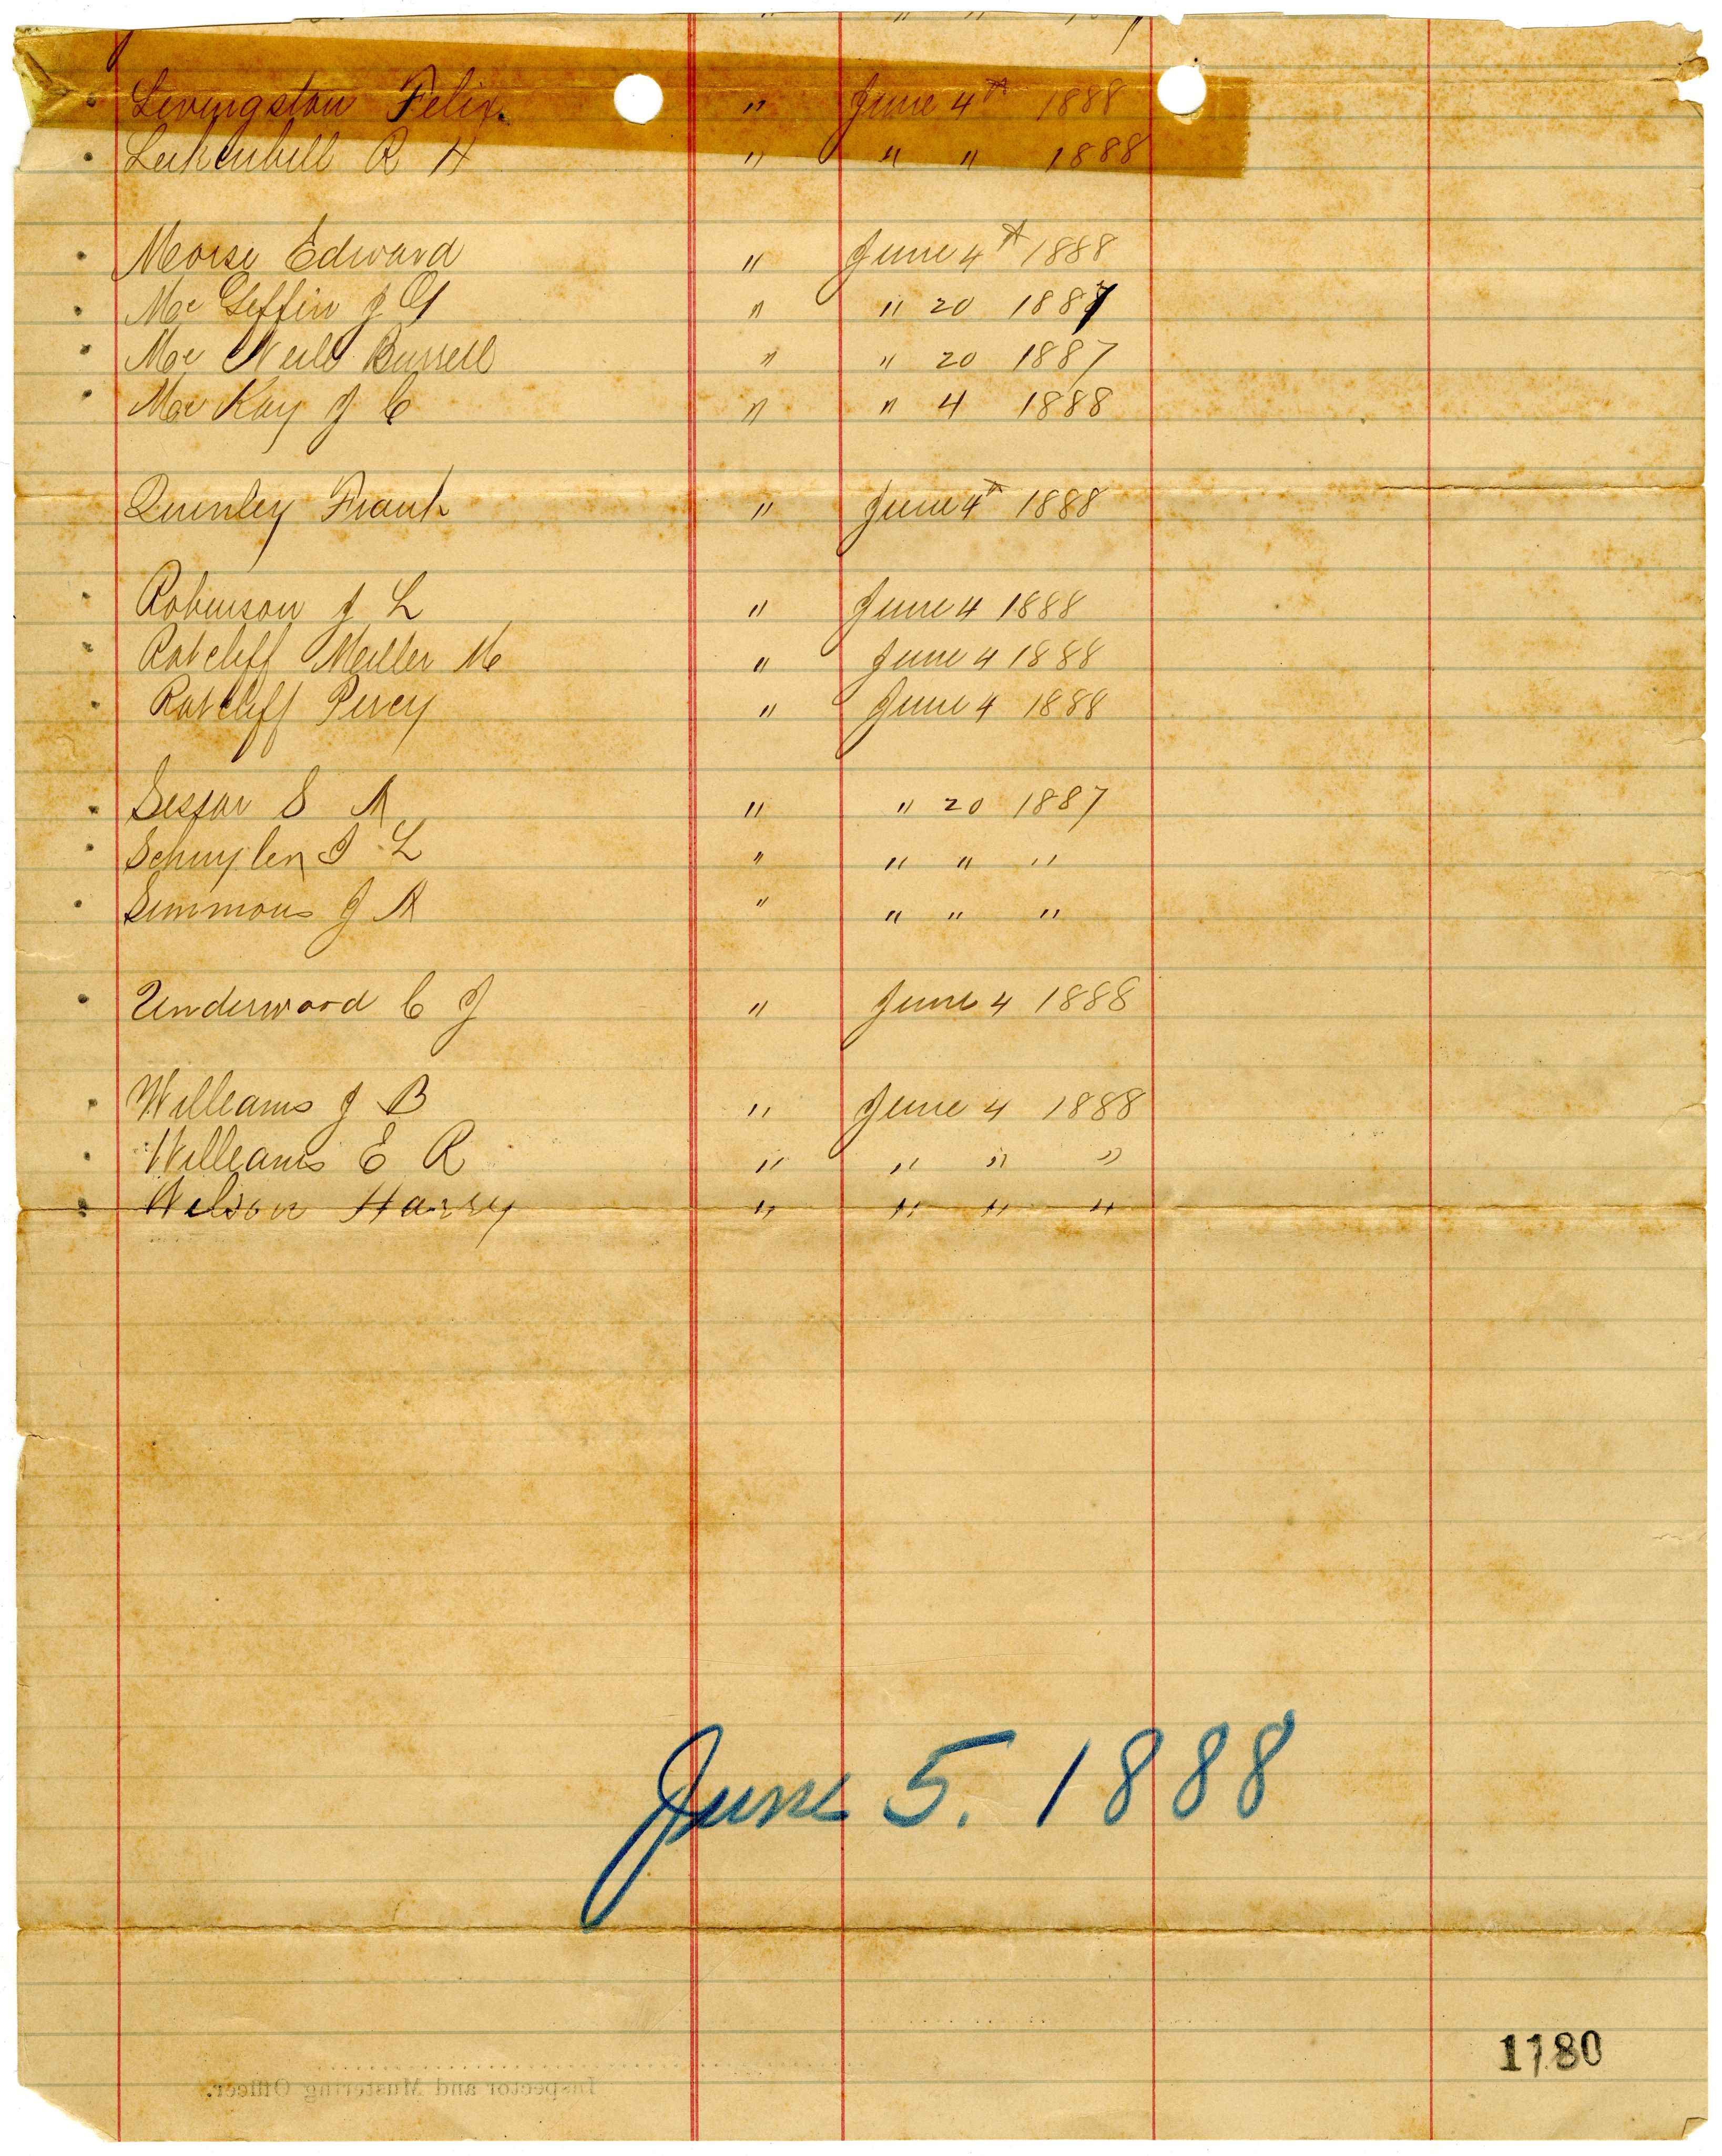 Livingston Felix " June 4th 1888
Lukenbill R H " " " 1888
Morse Edward " June 4th 1888
Mc Geffin J G " " 20 1887
Mc Neill Burrell " " 20 1887
Mc Kay J C " " 4 1888
Quinley Frank " June 4th 1888
Robinson J L " June 4 1888
Ratcliff Miller M " June 4 1888
Ratcliff Percy " June 4 1888
Sessar S A " " 20 1887
Schuyler J L " " " "
Simmons J A " " " "
Underwood C J " June 4 1888
Williams J B " June 4 1888
Williams E R " " " "
Wilson Harry " " " "
June 5. 1888
1180
Inspector and Mustering Officer.